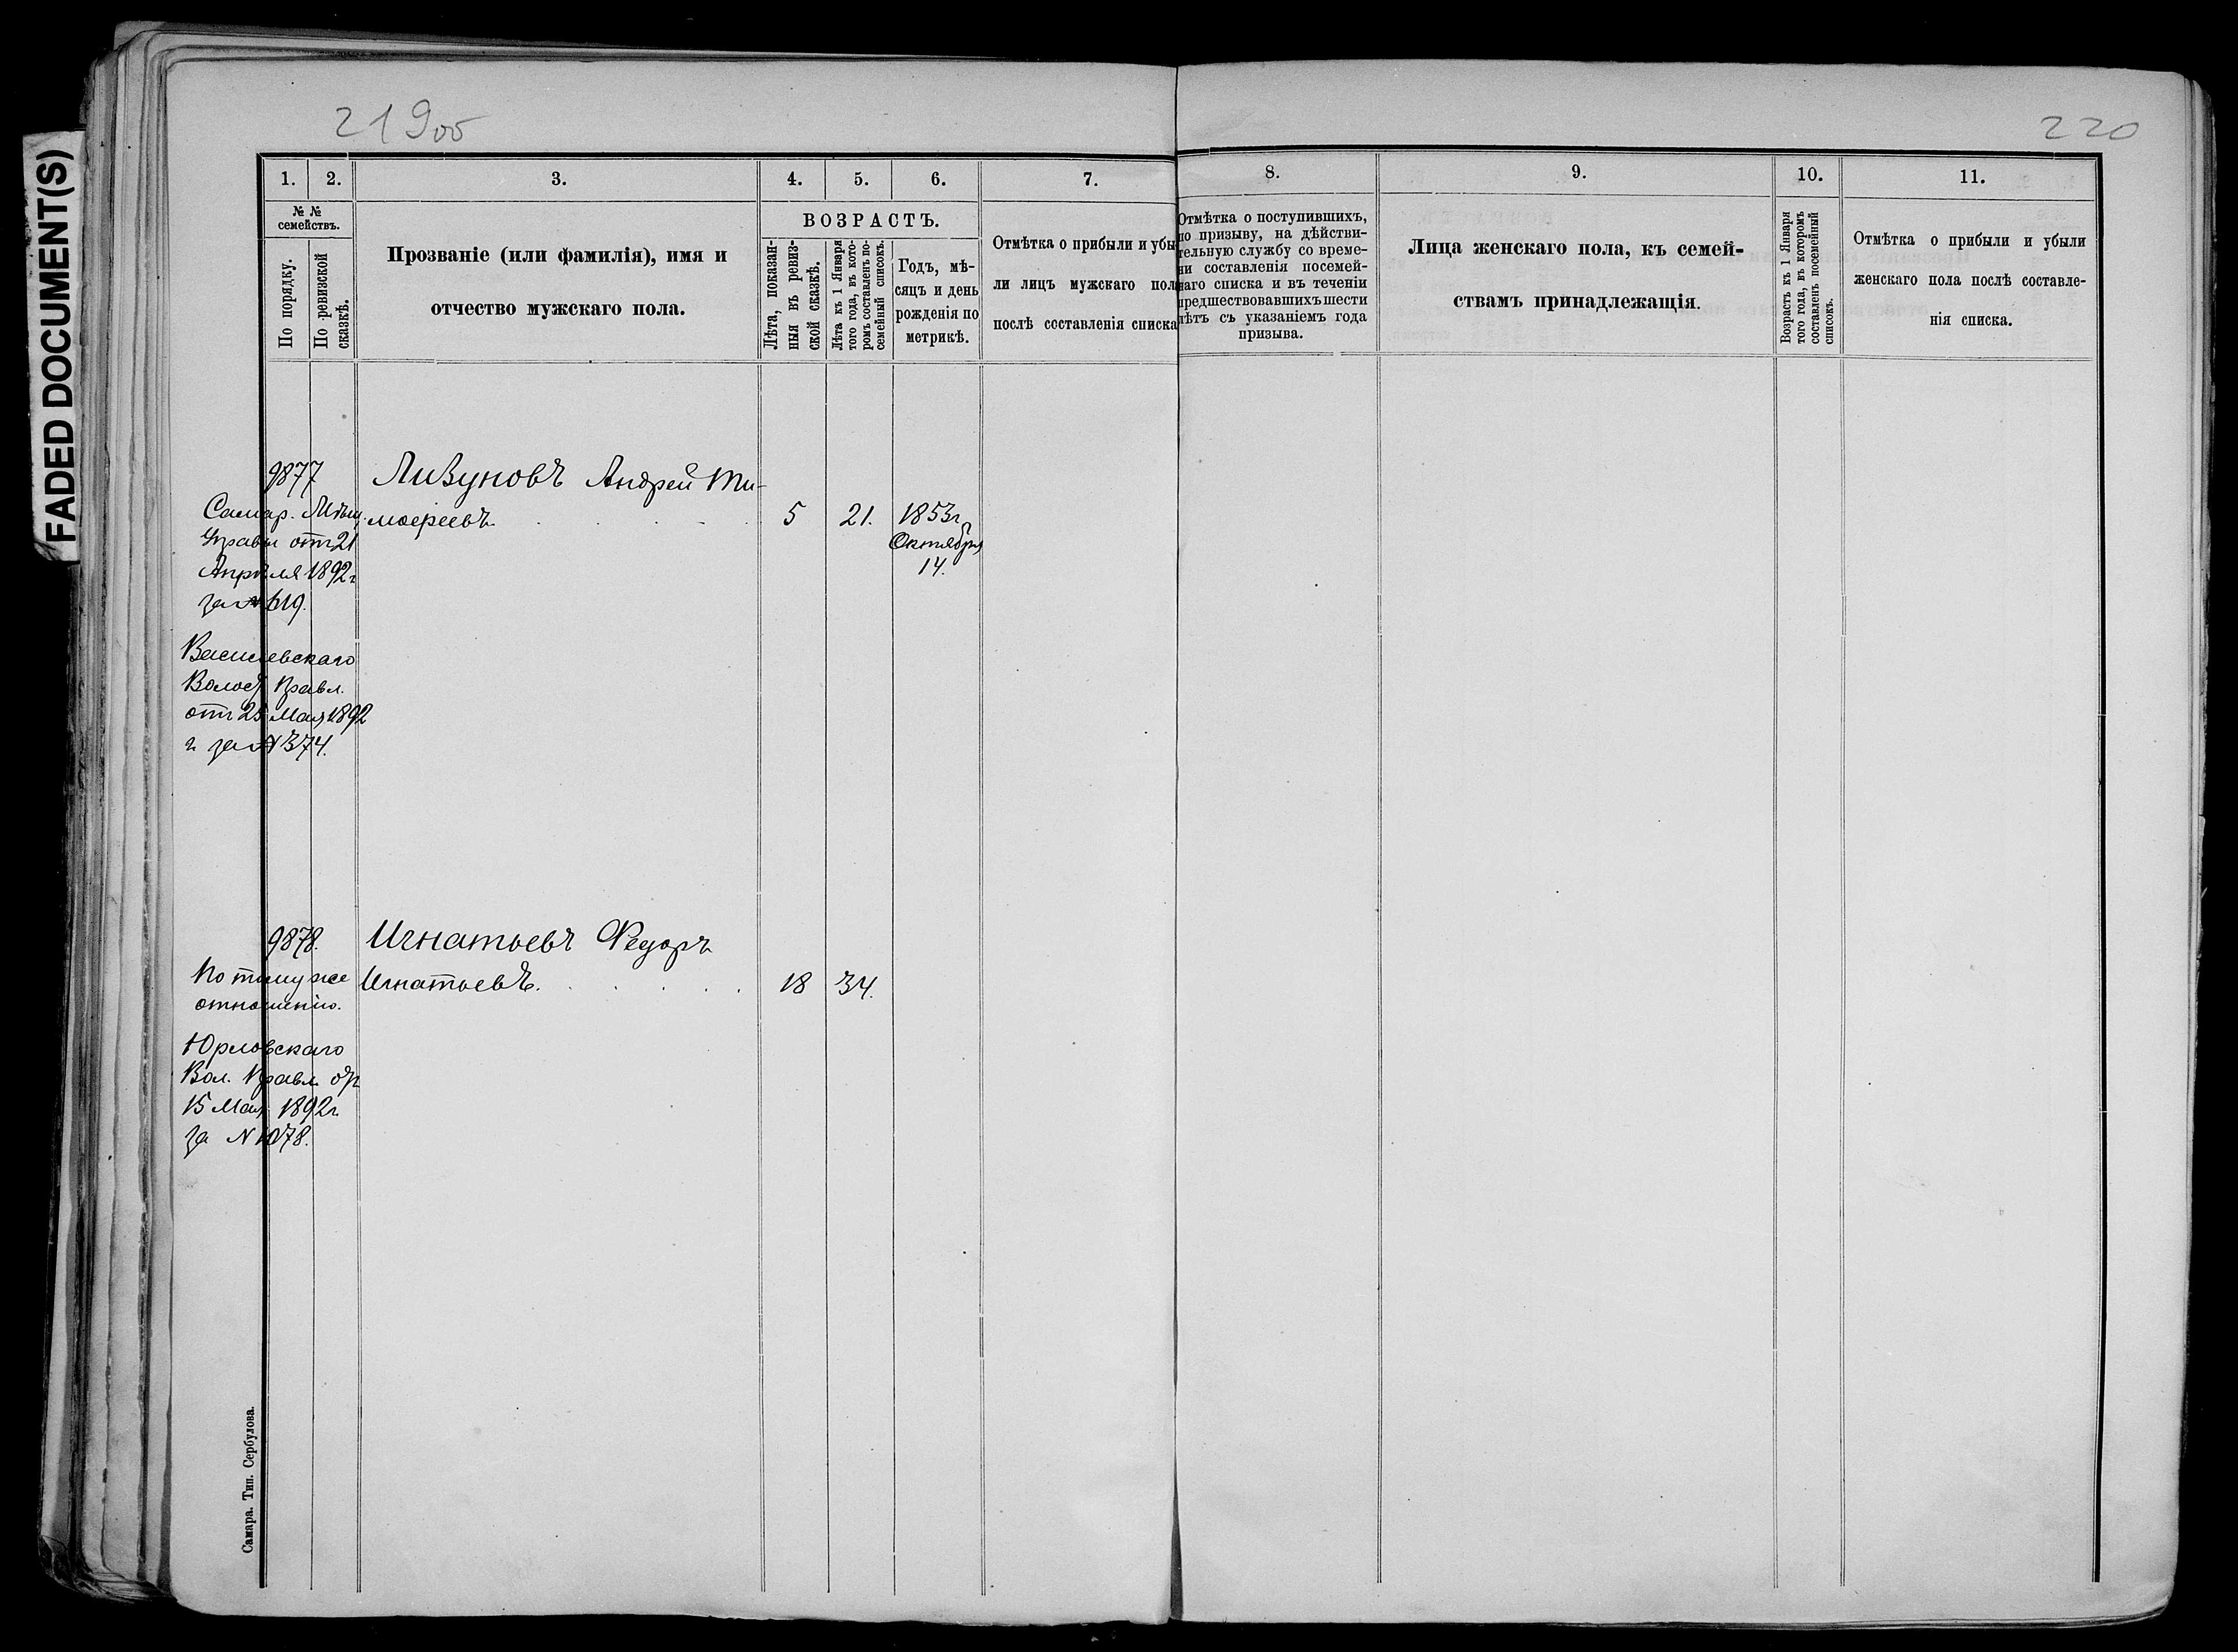 FADED DOCUMENT(S)
219об
220
1.
2.
3.
4.
5.
6.
7.
8.
9.
10.
11.
№ №
семействъ.
По порядку.
По ревизской
сказкѣ.
Прозваніе (или фамилія), имя и
отчество мужскаго пола.
ВОЗРАСТЪ.
Лѣта, показан-
ныя въ ревиз-
ской сказкѣ.
Лѣта къ 1 Января
того года, въ кото-
ромъ составленъ по-
семейный списокъ.
Годъ, мѣ-
сяцъ и день
рожденія по
метрикѣ.
Отмѣтка о прибыли и убы
ли лицъ мужскаго пола
послѣ составленія списка
Отмѣтка о поступившихъ,
по призыву, на дѣйстви-
тельную службу со време-
ни составленія посемей-
наго списка и въ теченіи
предшествовавшихъ шести
лѣтъ съ указаніемъ года
призыва.
Лица женскаго пола, къ семей-
ствамъ принадлежащія.
Возрастъ къ 1 Января
того года, въ которомъ
составленъ посемейный
списокъ.
Отмѣтка о прибыли и убыли
женскаго пола послѣ составле-
нія списка.
9877
Лизуновъ Андрей Ти-
мофеевъ 5 21. 1853г
Октября
14.
Самар. Мѣщ.
Управы отъ 21
Апрѣля 1892г
за № 619.
Васильевскаго
Волост Правл.
отъ 25 Мая 1892
г за № 374.
9878.
Игнатьевъ Федоръ
Игнатьевъ. 18 34.
По тому же
отношенію.
Юрловскаго
Вол. Правл. отъ
15 Мая 1892г
за № 1078.
Самара. Тип. Сербулова.